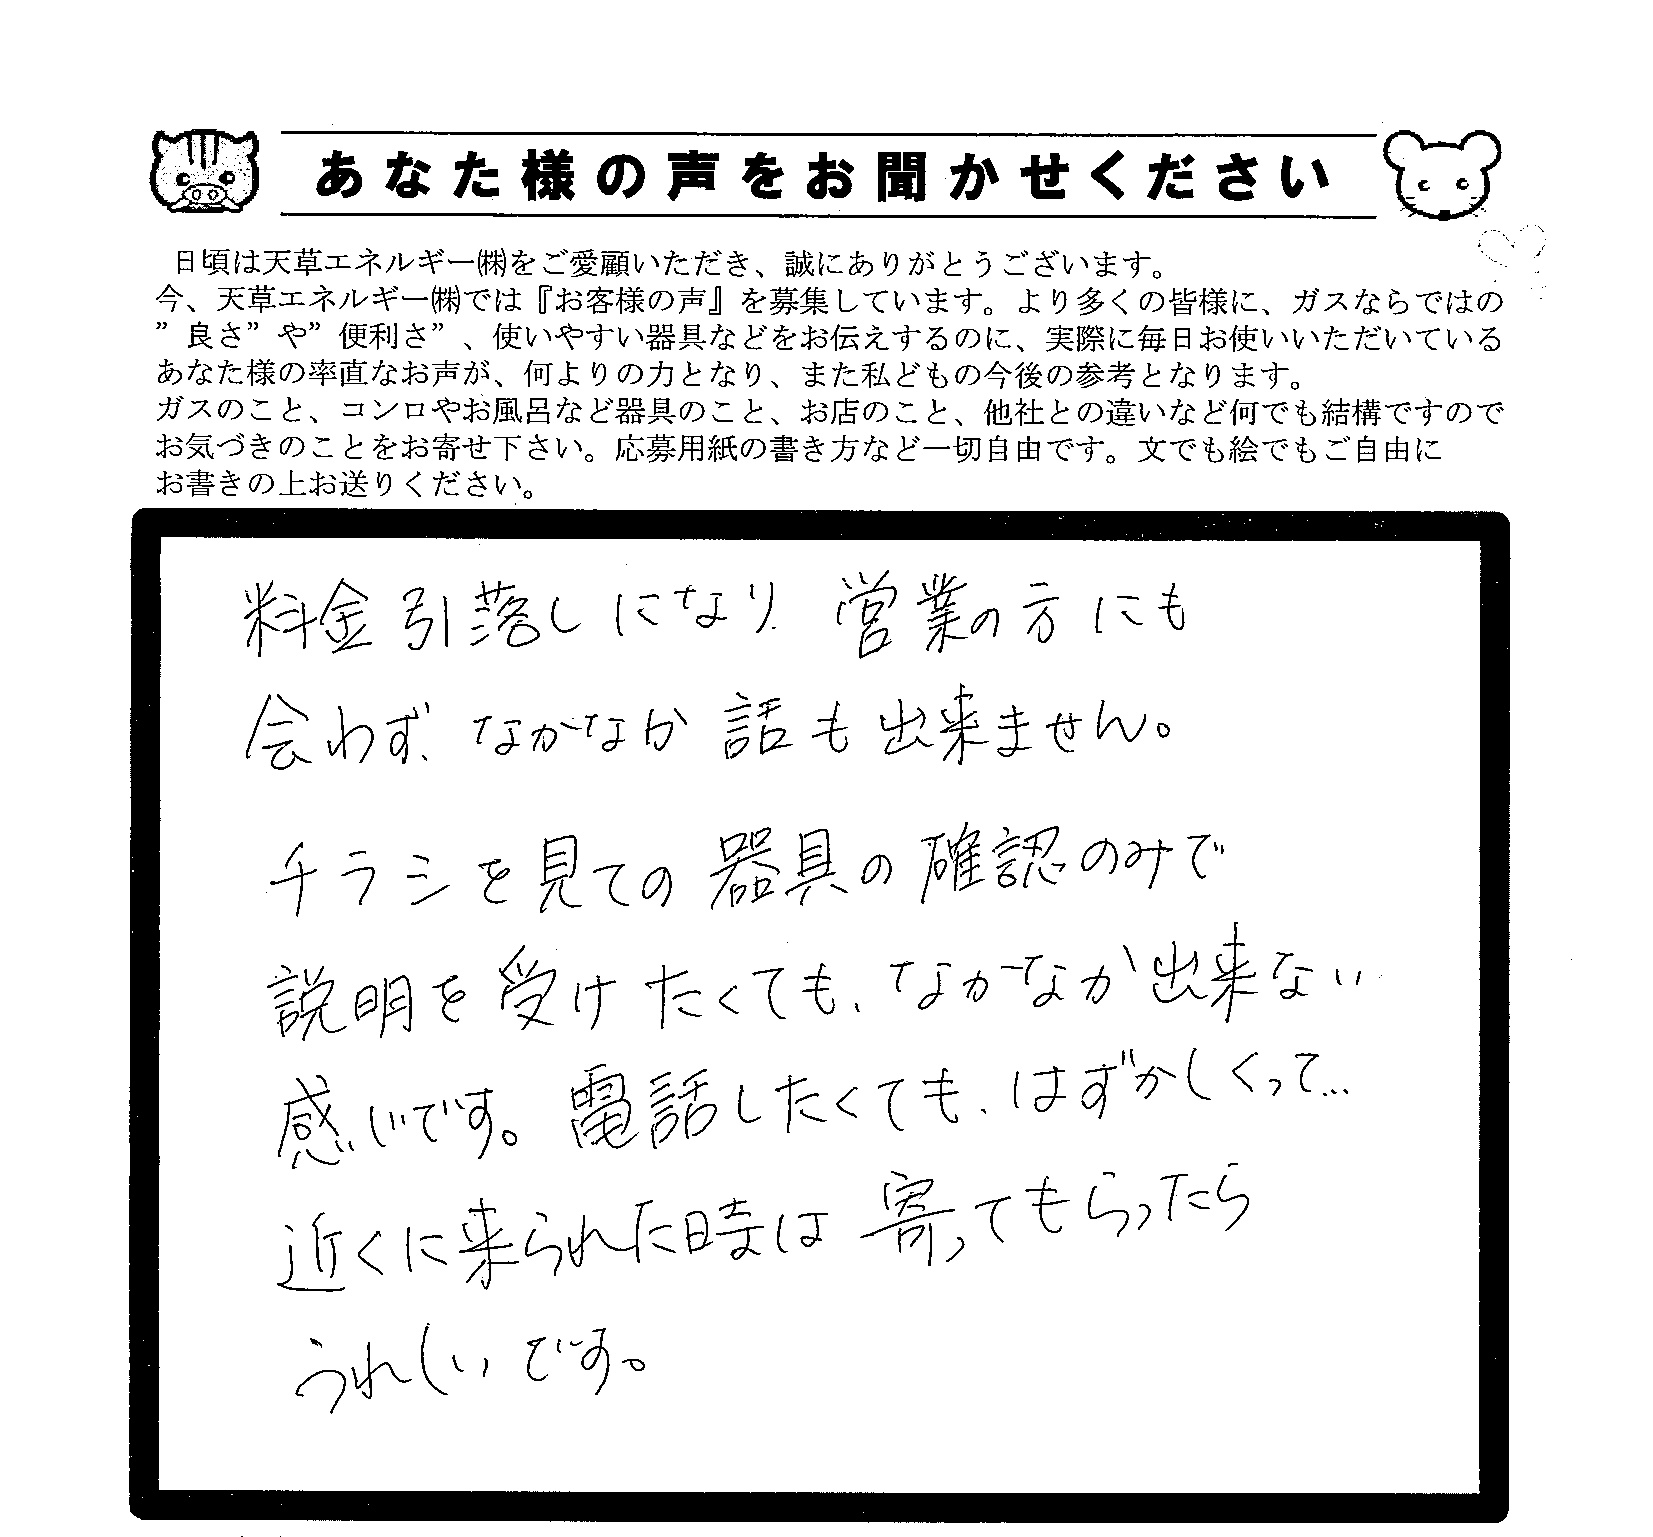 あなた様の声をお聞かせください
日頃は天草エネルギー㈱をご愛顧いただき、誠にありがとうございます。
今、天草エネルギー㈱では『お客様の声』を募集しています。より多くの皆様に、ガスならではの
”良さ”や”便利さ”、使いやすい器具などをお伝えするのに、実際に毎日お使いいただいている
あなた様の率直なお声が、何よりの力となり、また私どもの今後の参考となります。
ガスのこと、コンロやお風呂など器具のこと、お店のこと、他社との違いなど何でも結構ですので
お気づきのことをお寄せ下さい。応募用紙の書き方など一切自由です。文でも絵でもご自由に
お書きの上お送りください。
料金引落しになり、営業の方にも
会わず、なかなか話も出来ません。
チラシを見ての器具の確認のみで
説明を受けたくても、なかなか出来ない
感じです。電話したくても、はずかしくって…
近くに来られた時は寄ってもらったら
うれしいです。